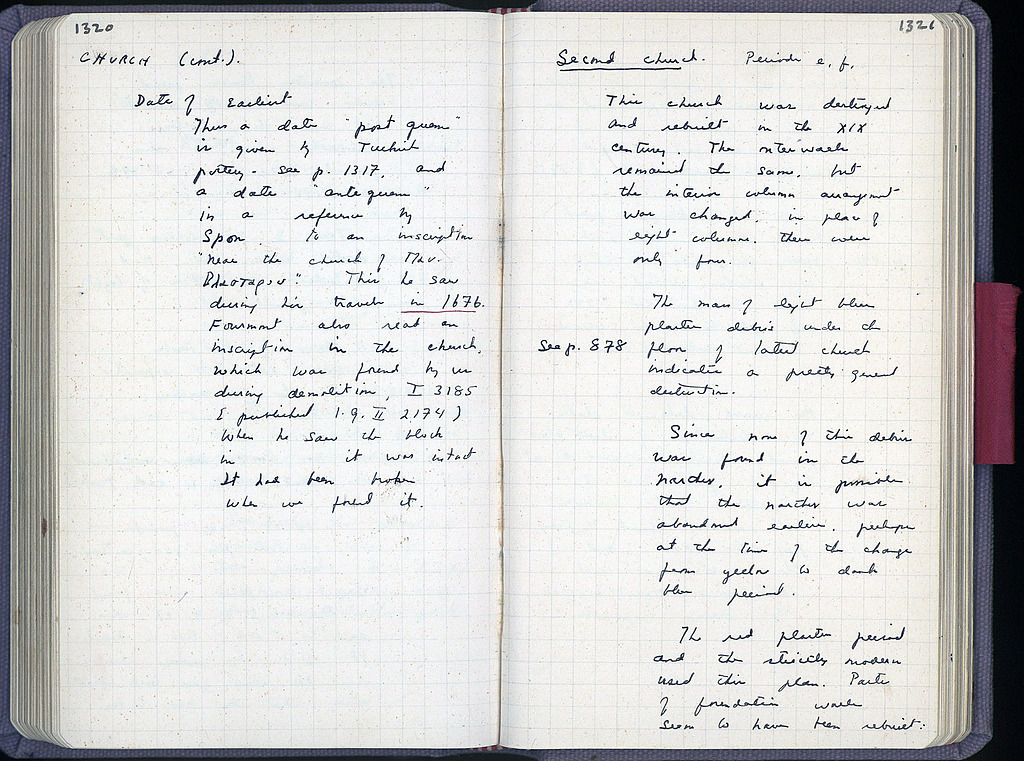 1320
CHURCH (cont.).
Date of Earliest
Thus a date "post quem"
is given by Turkish
pottery - see p. 1317, and
a date "ante quem"
in a reference by
Spon. to an inscription
"near the church of
This he saw
during his travels in 1676.
Fourmont also read an
inscription in the church,
which was found by us
during demolition, I 3185
( published I.G. II 2174)
When he saw the block
in it was intact
It had been broken
when we found it.
1321
Second church. Periods e, f.
This church was destroyed
and rebuilt in the XIX
century. The outer walls
remained the same, but
the interior column arrangmt
was changed, in place of
eight columns, there were
only four.
The mass of light blue
plaster debris under the
See p. 878 floor of latest church
indicates a pretty general
destruction.
Since none of this debris
was found in the
narthex, it is possible
that the narthex was
abandoned earlier, perhaps
at the time of the change
from yellow to dark
blue period.
The red plaster period
and the strictly modern
used this plan. Parts
of foundation walls
seem to have been rebuilt: